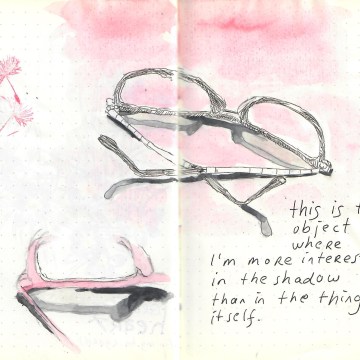 this is t
object
where
I'm more interes
in the shadow
than in the thing
itself.